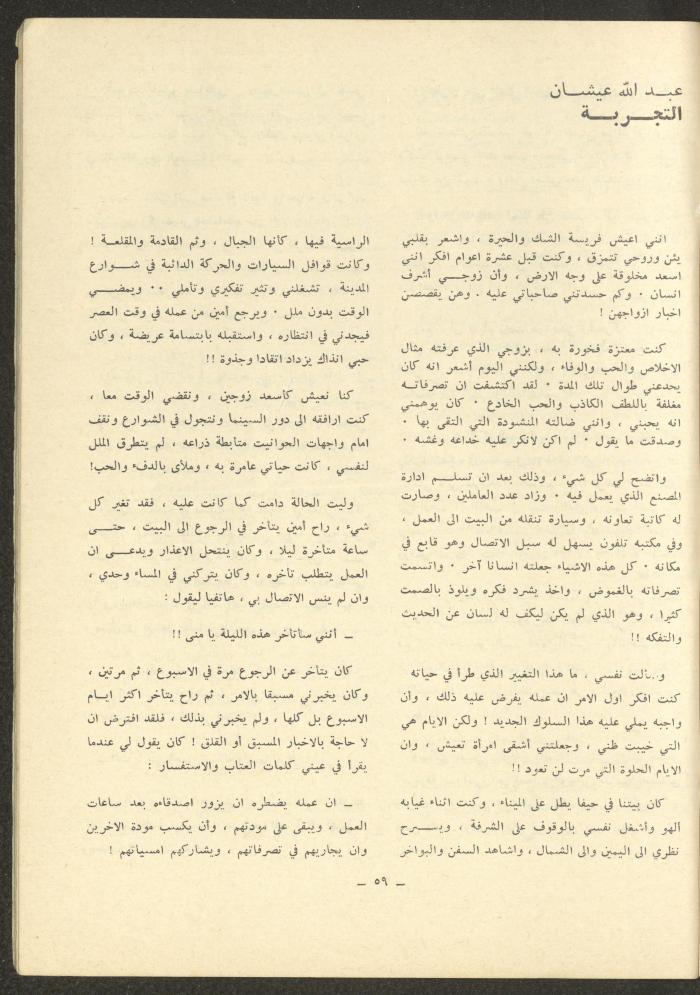 عبد الله عيشان
التجربة
انني اعيش فريسة الشك والحيرة ، واشعر بقلبي
يئن وروحي تتمزق ، وكنت قبل عشرة اعوام افكر انني
اسعد مخلوقة على وجه الارض ، وأن زوجي أشرف
انسان ٠ وكم حسدتني صاحباتي عليه ٠ وهن يقصصن
اخبار ازواجهن !
كنت معتزة فخورة به ، بزوجي الذي عرفته مثال
الاخلاص والحب والوفاء ، ولكنني اليوم أشعر انه كان
يخدعني طوال تلك المدة ٠ لقد اكتشفت ان تصرفاته
مغلفة باللطف الكاذب والحب الخادع ٠ كان يوهمني
انه يحبني ، وانني ضالته المنشودة التي التقى بها ٠
وصدقت ما يقول ٠ لم اكن لانكر عليه خداعه وغشه ٠
واتضح لي كل شيء ، وذلك بعد ان تسلم ادارة
المصنع الذي يعمل فيه ٠ وزاد عدد العاملين ، وصارت
له كاتبة تعاونه ، وسيارة تنقله من البيت الى العمل ،
وفي مكتبه تلفون يسهل له سبل الاتصال وهو قابع في
مكانه ٠ كل هذه الاشياء جعلته انسانا آخر ٠ واتسمت
تصرفاته بالغموض ، واخذ يشرد فكره ويلوذ بالصمت
كثيرا ، وهو الذي لم يكن ليكف له لسان عن الحديث
والتفكه !!
وسألت نفسي ، ما هذا التغيير الذي طرأ في حياته
كنت افكر اول الامر ان عمله يفرض عليه ذلك ، وأن
واجبه يملي عليه هذا السلوك الجديد ! ولكن الايام هي
التي خيبت ظني ، وجعلتني أشقى امرأة تعيش ، وان
الايام الحلوة التي مرت لن تعود !!
كان بيتنا في حيفا يطل على الميناء ، وكنت اثناء غيابه
ألهو وأشغل نفسي بالوقوف على الشرفة ، ويسرح
نظري الى اليمين والى الشمال ، واشاهد السفن والبواخر
الراسية فيها ، كأنها الجبال ، وثم القادمة والمقلعة !
وكانت قوافل السيارات والحركة الدائبة في شوارع
المدينة ، تشغلني وتثير تفكيري وتأملي ٠٠ ويمضي
الوقت بدون ملل ٠ ويرجع أمين من عمله في وقت العصر
فيجدني في انتظاره ، واستقبله بابتسامة عريضة ، وكان
حبي انذاك يزداد اتقادا وجذوة !!
كنا نعيش كأسعد زوجين ، ونقضي الوقت معا ،
كنت ارافقه الى دور السينما ونتجول في الشوارع ونقف
امام واجهات الحوانيت متأبطة ذراعه ، لم يتطرق الملل
لنفسي ، كانت حياتي عامرة به ، وملأى بالدفء والحب!
وليت الحالة دامت كما كانت عليه ، فقد تغير كل
شيء ، راح أمين يتأخر في الرجوع الى البيت ، حتى
ساعة متأخرة ليلا ، وكان ينتحل الاعذار ويدعي ان
العمل يتطلب تأخره ، وكان يتركني في المساء وحدي ،
وان لم ينس الاتصال بي ، هاتفيا ليقول :
ــ أنني سأتأخر هذه الليلة يا منى !!
كان يتأخر عن الرجوع مرة في الاسبوع ، ثم مرتين ،
وكان يخبرني مسبقا بالامر ، ثم راح يتأخر اكثر ايام
الاسبوع بل كلها ، ولم يخبرني بذلك ، فلقد افترض ان
لا حاجة بالاخبار المسبق أو القلق ! كان يقول لي عندما
يقرأ في عيني كلمات العتاب والاستفسار :
ــ ان عمله يضطره ان يزور اصدقاءه بعد ساعات
العمل ، ويبقى على مودتهم ، وأن يكسب مودة الاخرين
وان يجاريهم في تصرفاتهم ، ويشاركهم امسياتهم !
ــ ٥٩ ــ